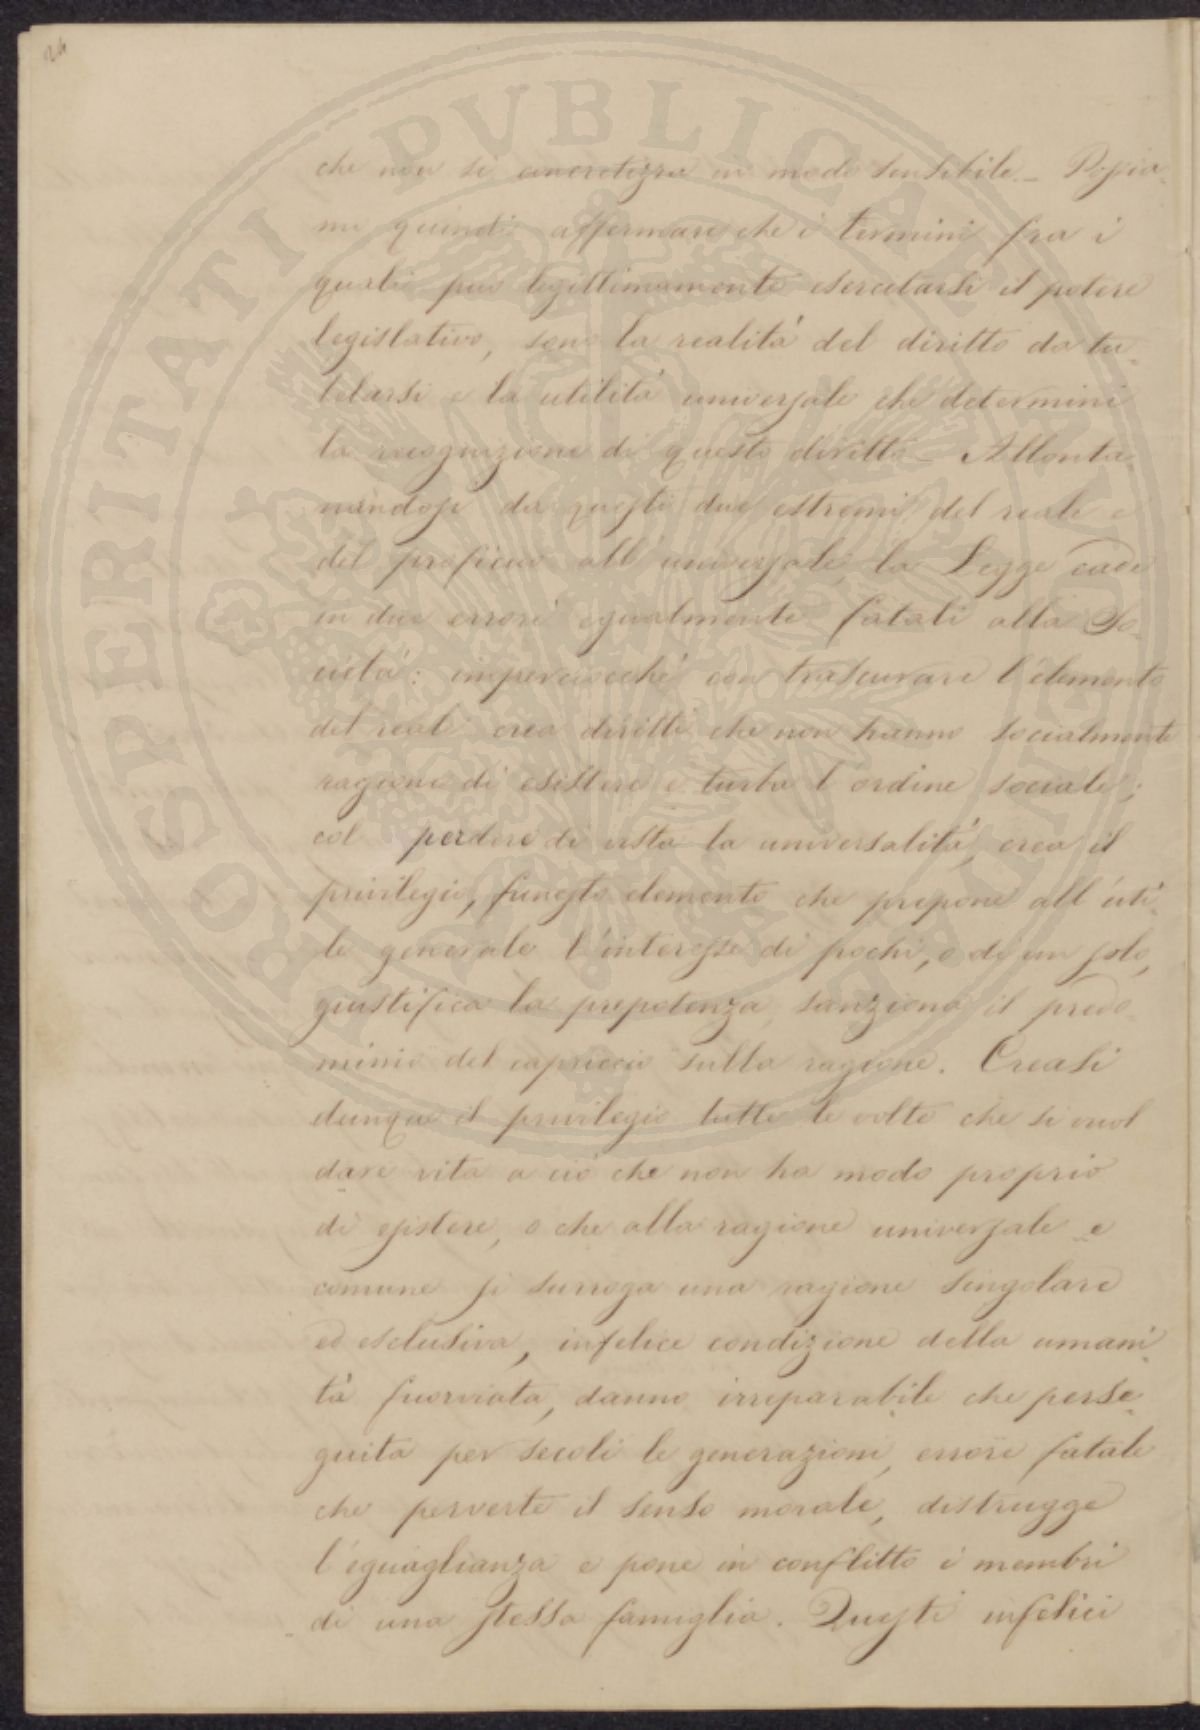 24
che non si concretizza in modo sensibile_ Possia-
mo quindi affermare che i termini fra i
quali può legittimamente esercitarsi il potere
legislativo, sono la realità del diritto da tu-
telarsi e la utilità universale che determini
la recognizione di questo diritto_ Allonta-
nandosi da questi due estremi del reale e
del proficuo all'universale, la Legge cade
in due errori egualmente fatali alla So-
cietà: imperciocché con trascurare l'elemento
del reale crea diritti che non hanno socialmente
ragione di esistere e turba l'ordine sociale;
col perdere di vista la universalità, crea il
privilegio, funesto elemento che prepone all'uti-
le generale l'interesse di pochi, o di un solo,
giustifica la prepotenza, sanziona il predo-
minio del capriccio sulla ragione. Creasi
dunque il privilegio tutte le volte che si vuol
dare vita a ciò che non ha modo proprio
di esistere, o che alla ragione universale e
comune si surroga una ragione singolare
ed esclusiva, infelice condizione della umani-
tà fuorviata, danno irreparabile che perse-
guita per secoli le generazioni, errore fatale
che perverte il senso morale, distrugge
l'eguaglianza e pone in conflitto i membri
di una stessa famiglia. Questi infelici
PROSPERITATI PVBLICAE